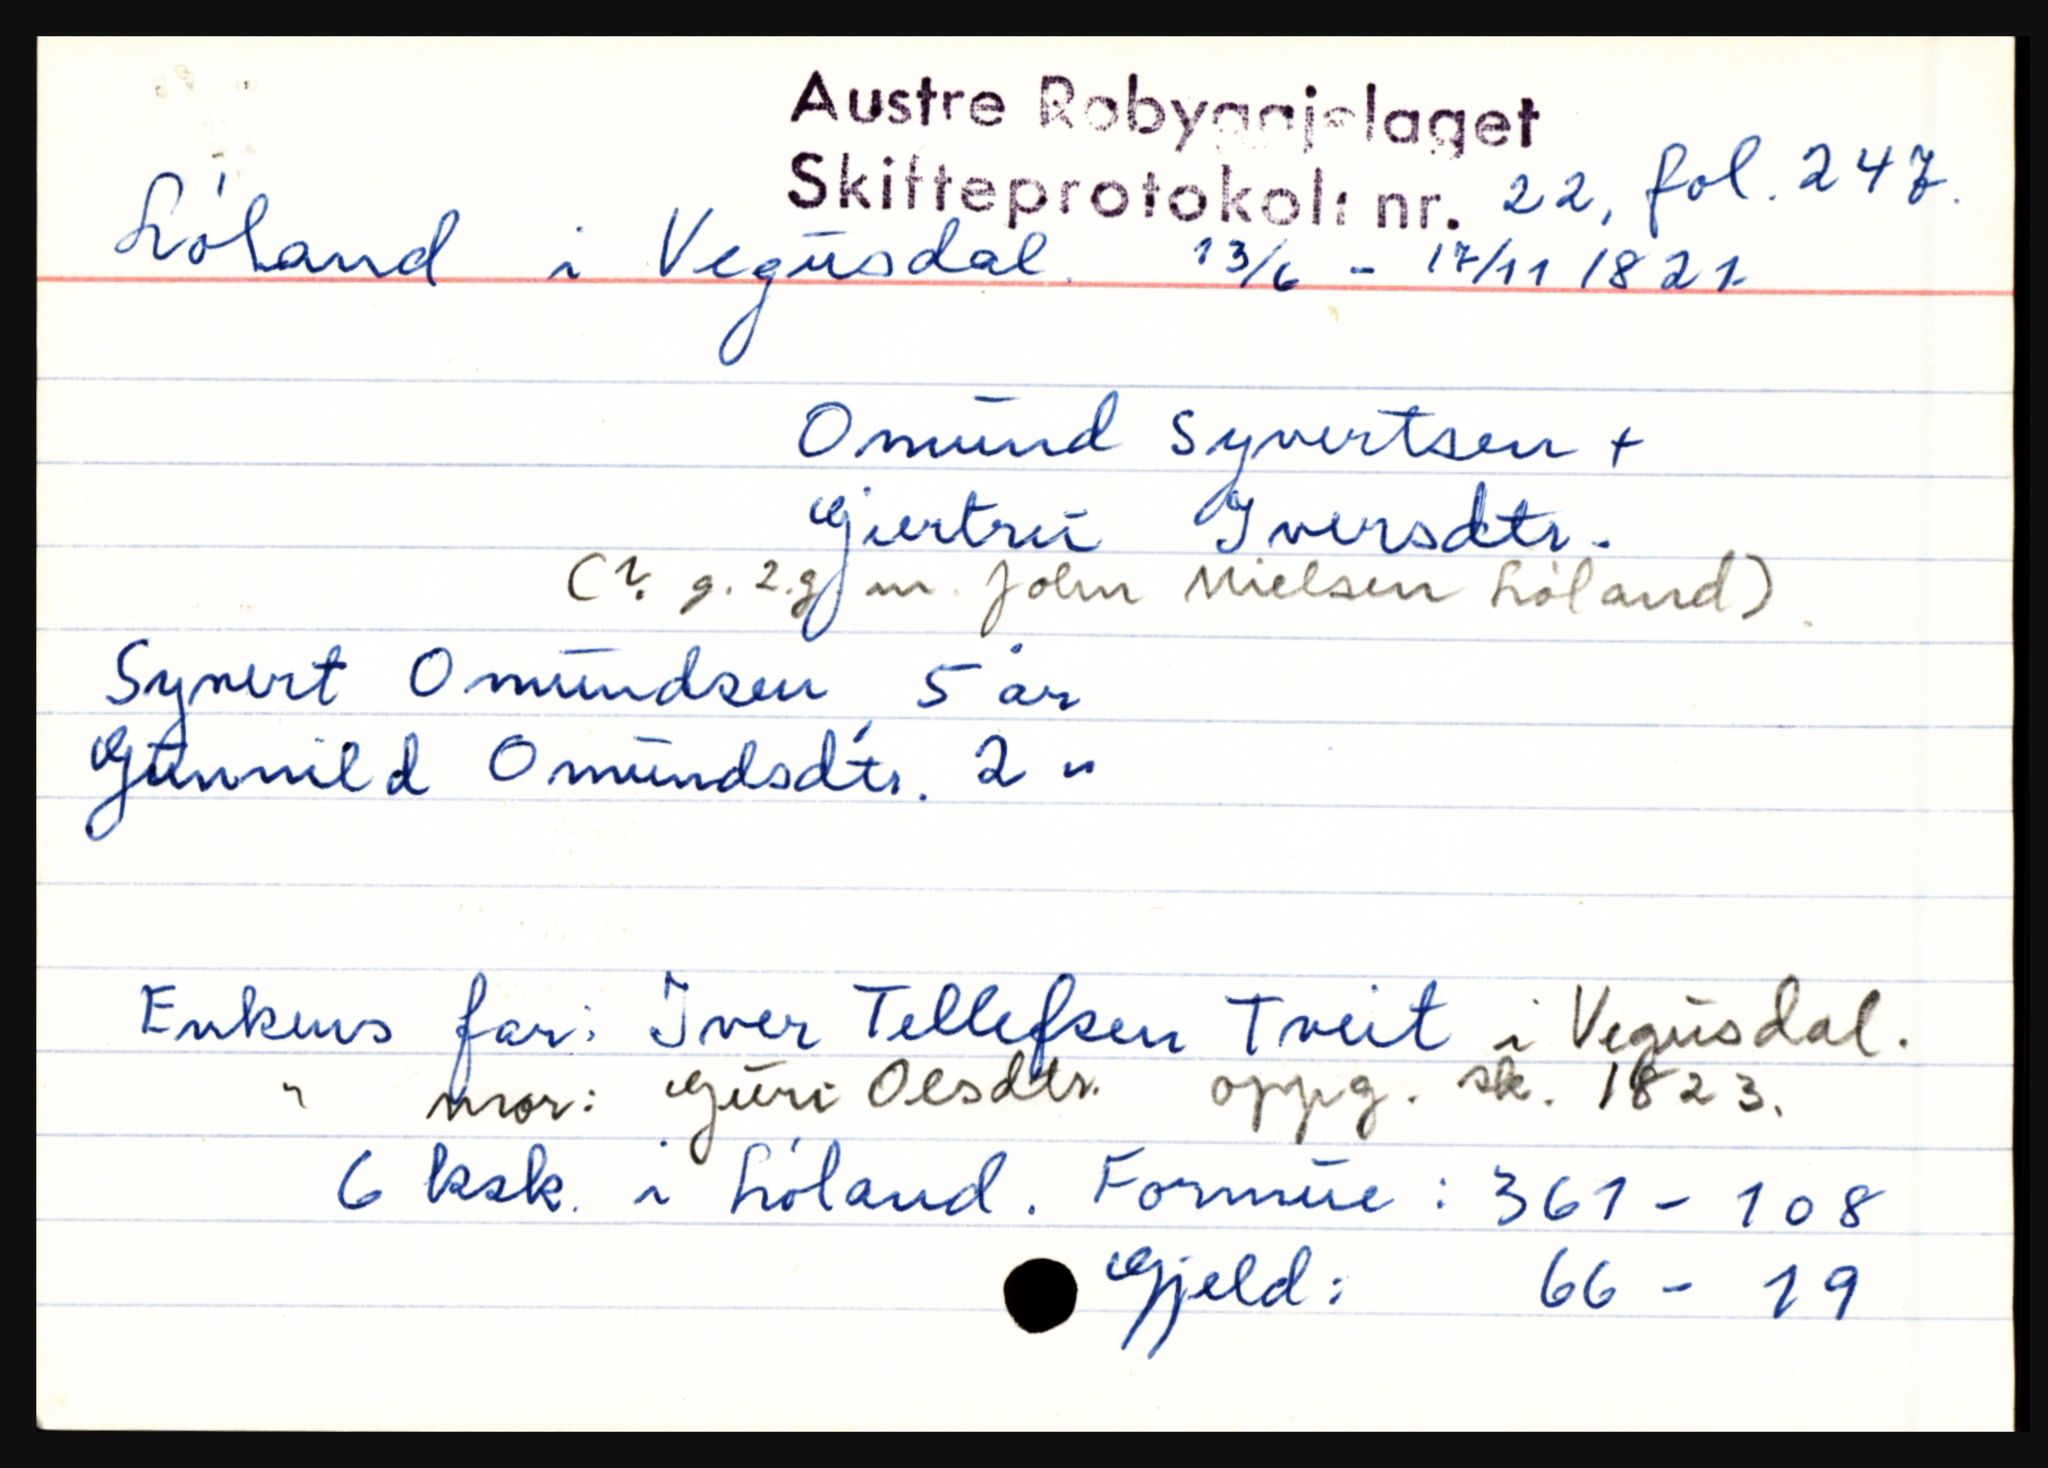 Austre Robyggjelaget
Skifteprotokoll nr. 22, fol. 247.
Lóland i Vegusdal. 13/6 - 17/11 1821.
Omund Syvertsen +
Gjertru Iversdtr.
(?. g. 2.g m. John Nielsen Lóland).
Syvert Omundsen, 5 år
Gunnild Omundsdtr. 2 "
Enkens far: Iver Tellefsen Tveit i Vegusdal.
" mor: Guri Olsdtr. oppg. sk. 1823.
6 ksk. i Lóland. Formue: 361 - 108
Gjeld: 66 - 19